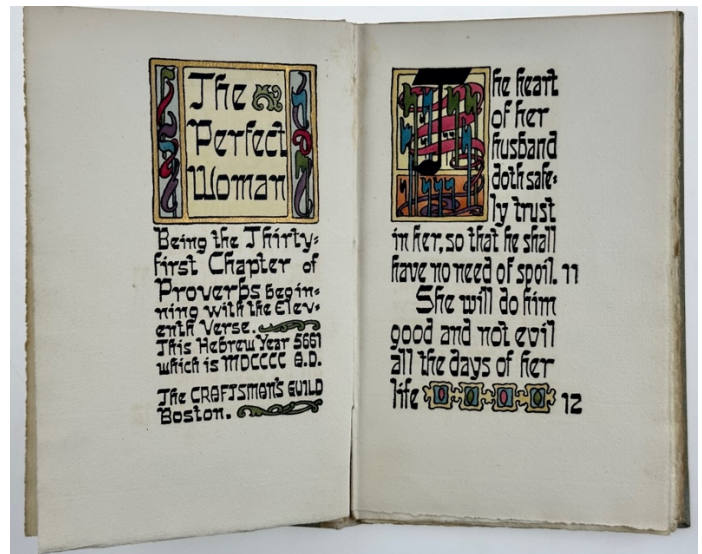 The
Perfect
Woman
Being the Thirty-
first Chapter of
Proverbs begin-
ning with the Elev-
enth Verse.
This Hebrew Year 5661
which is MDCCCC A.D.
The CRAFTSMAN'S GUILD
Boston.
The heart
of her
husband
doth safe-
ly trust
in her, so that he shall
have no need of spoil. 11
She will do him
good and not evil
all the days of her
life 12